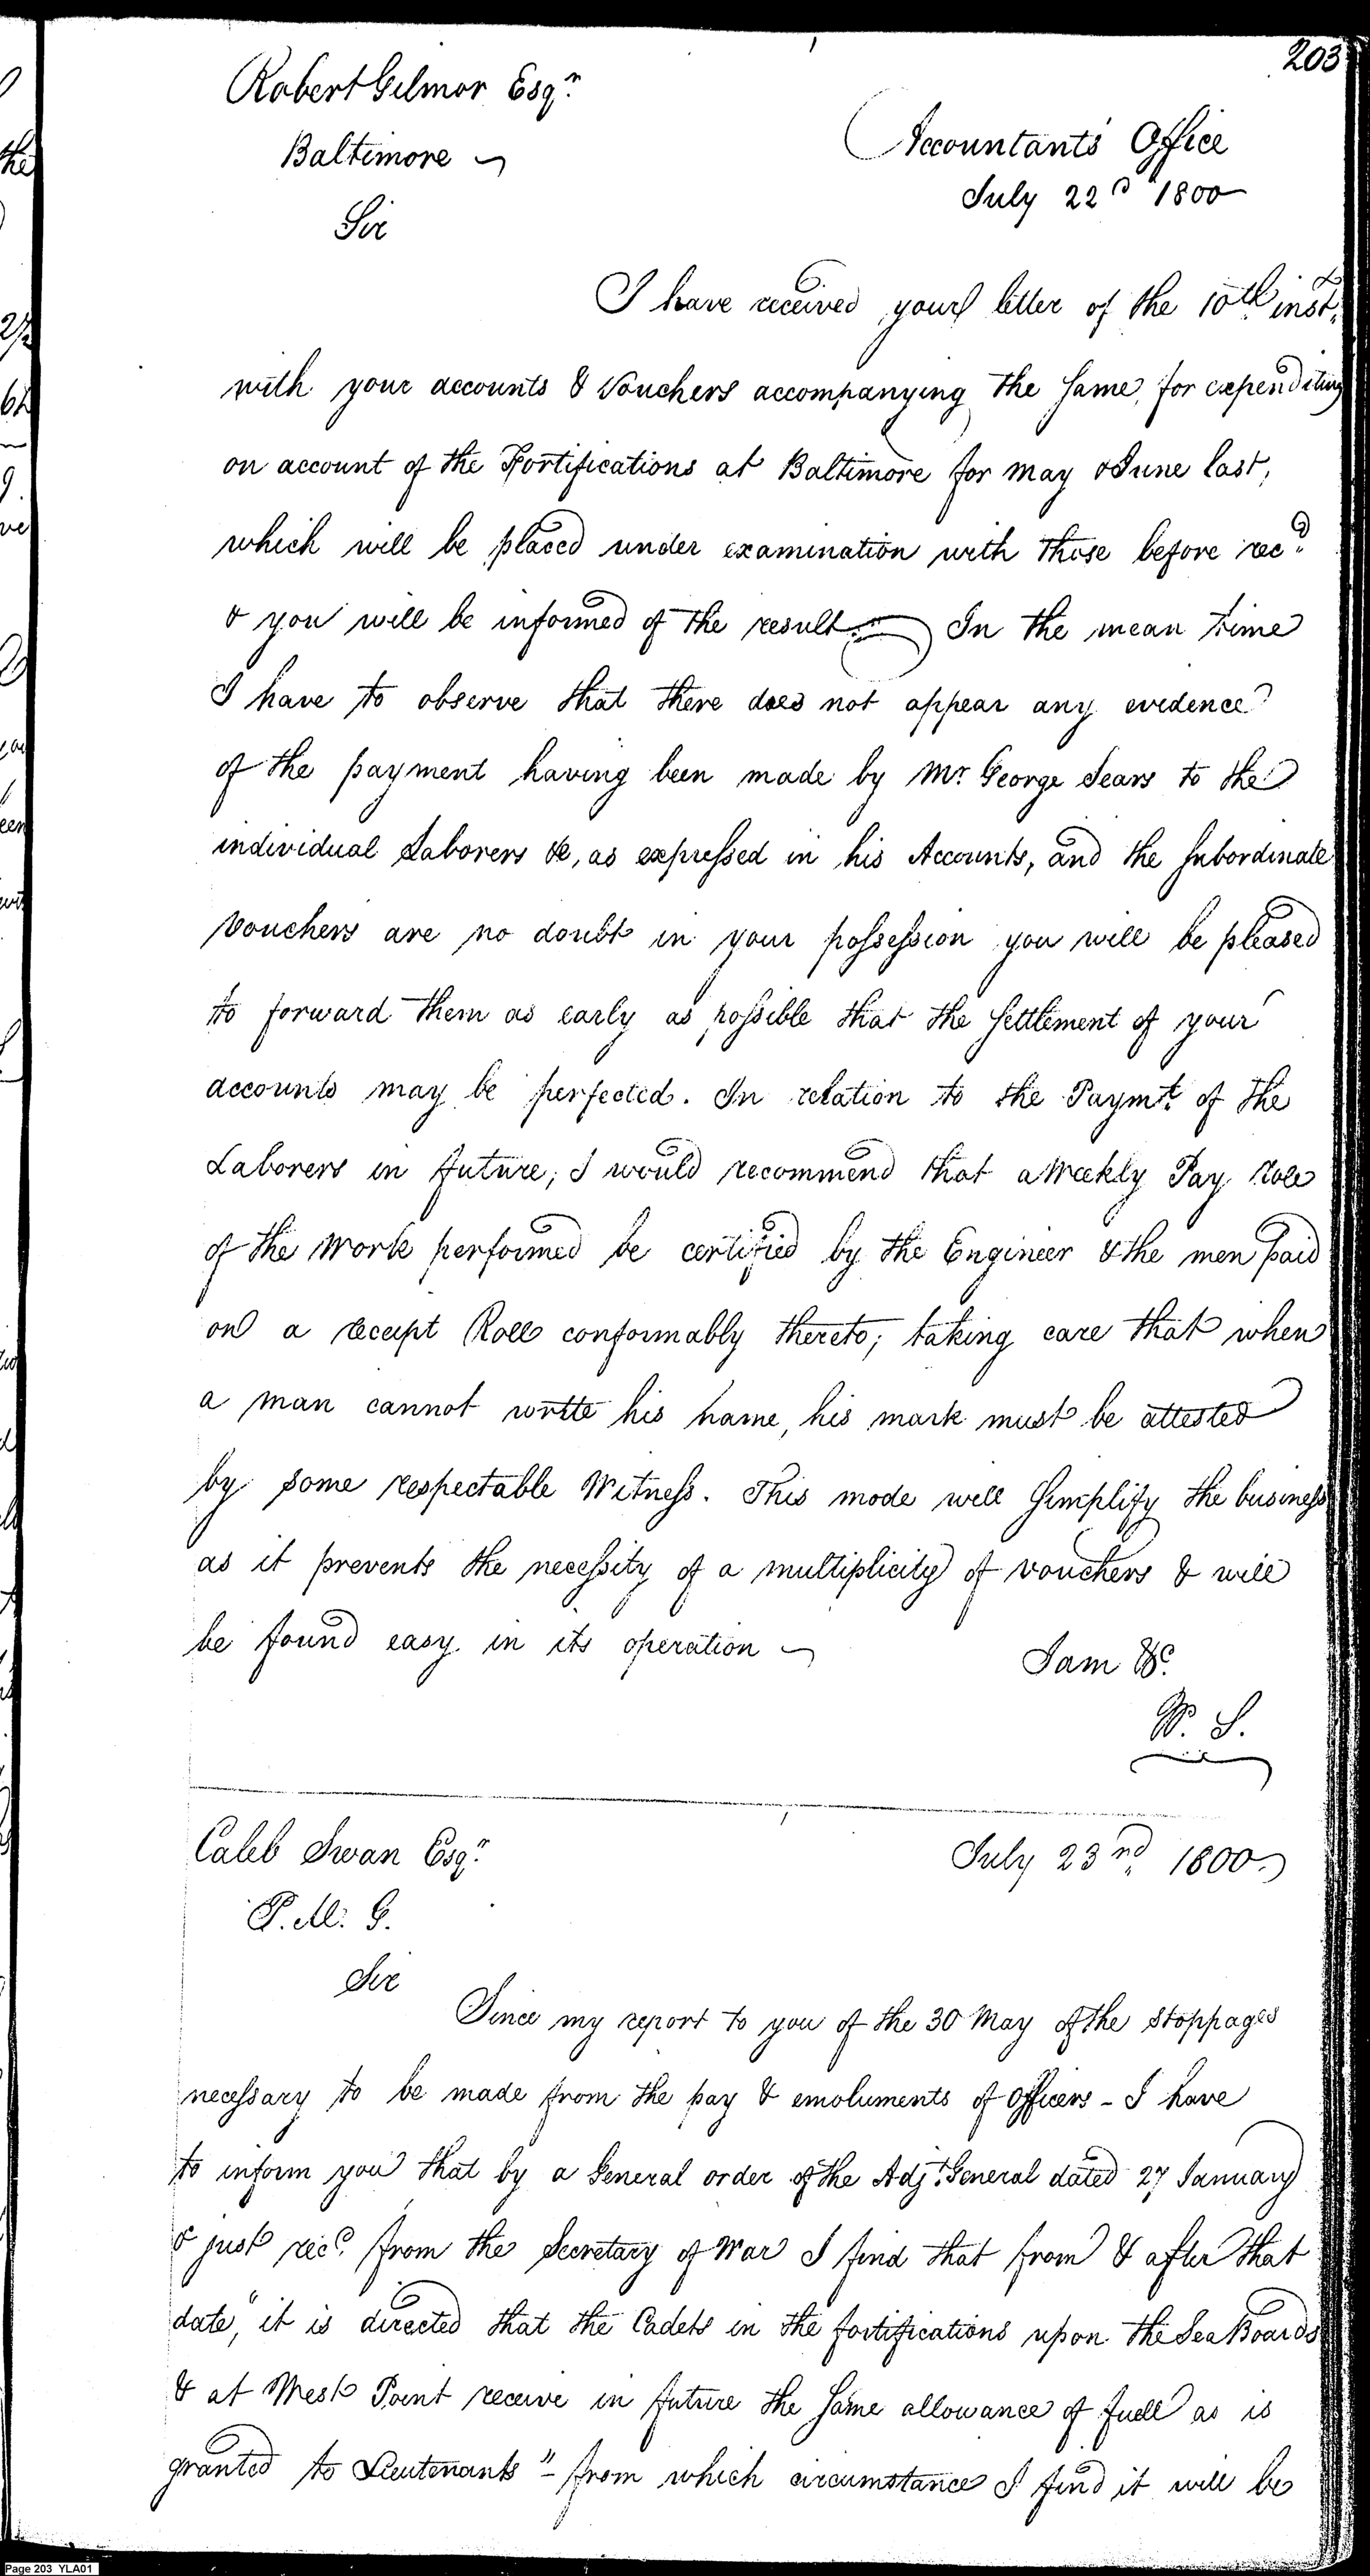 203
Robert Gilmor Esqr.
Baltimore
Accountants Office
July 22d 1800
Sir
I have received your letter of the 10th inst.
with your accounts & Vouchers accompanying the same, for expenditures
on account of the Fortifications at Baltimore for may & June last,
which will be placed under examination with those before recd.
& you will be informed of the result. In the mean time
I have to observe that there does not appear any evidence
of the payment having been made by Mr. George Sears to the
individual Laborers &c, as expressed in his Accounts, and the subordinate
Vouchers are no doubt in your possession you will be pleased
to forward them as early as possible that the settlement of your
accounts may be perfected. In relation to the Paymt. of the
Laborers in future; I would recommend that a Weekly Pay role
of the Work performed be certified by the Engineer & the men paid
on a receipt Roll conformably thereto; taking care that when
a man cannot write his name, his mark must be attested
by some respectable Witness. This mode will simplify the business
as it prevents the necessity of a multiplicity of vouchers & will
be found easy in its operation
I am &c.
W. S.
Caleb Swan Esqr.
July 23rd. 1800
P. M. G.
Sir
Since my report to you of the 30 May of the stoppages
necessary to be made from the pay & emoluments of officers - I have
to inform you that by a General order of the Adjt. General dated 27 January
& just recd. from the Secretary of War I find that from & after that
date, "it is directed that the Cadets in the fortifications upon the Sea Boards
& at West Point receive in future the same allowance of fuell as is
granted to Lieutenants" - from which circumstance I find it will be
Page 203 YLA01